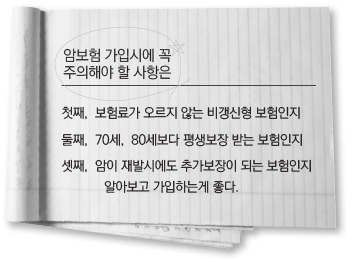 암보험 가입시에 꼭
주의해야 할 사항은
첫째, 보험료가 오르지 않는 비갱신형 보험인지
둘째, 70세, 80세보다 평생보장 받는 보험인지
셋째, 암이 재발시에도 추가보장이 되는 보험인지
알아보고 가입하는게 좋다.